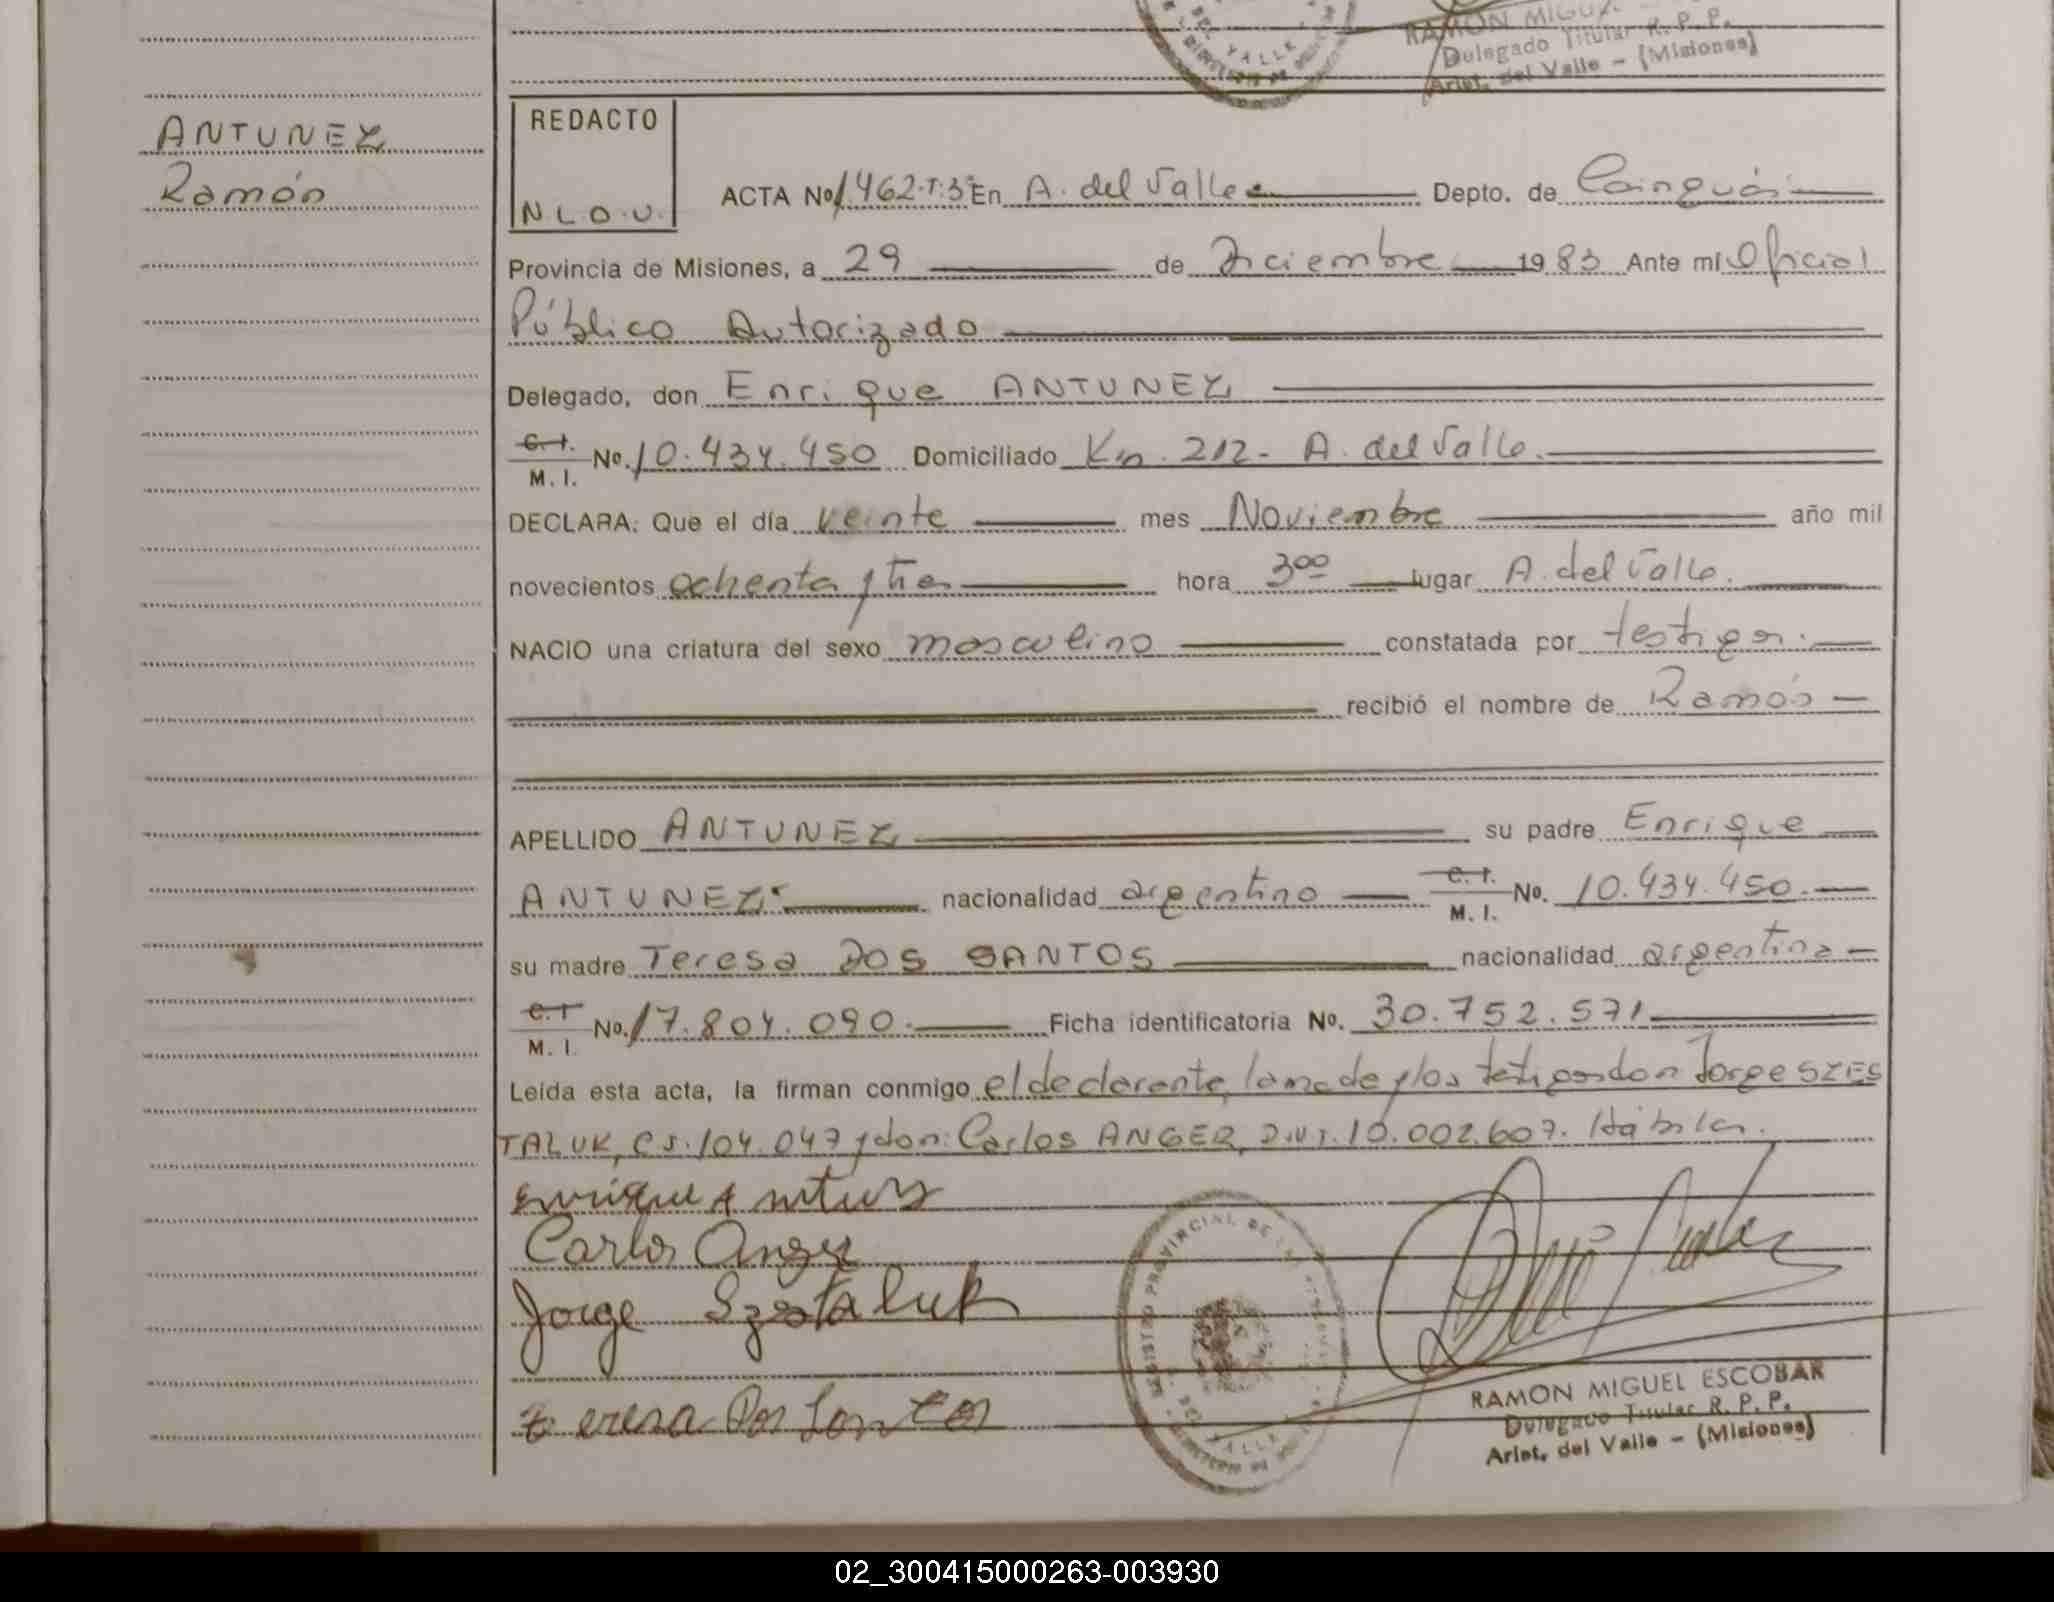 RAMON MIGU
Delegado Titular R. P. P.
Arist. del Valle - (Misiones)
ANTUNEZ
Ramón
REDACTO
N.L.O.U.
ACTA Nº 1.462.T:3º En A. del Valle Depto. de Cainguás
Provincia de Misiones, a 29 de Diciembre 1983 Ante mi Oficial
Público Autorizado
Delegado, don Enrique ANTUNEZ
C. I. M. I. Nº. 10.434.450 Domiciliado Km. 212- A. del Valle.
DECLARA: Que el día veinte mes Noviembre año mil
novecientos ochenta y tres hora 3:00 lugar A. del Valle.
NACIO una criatura del sexo masculino constatada por testigos.
recibió el nombre de Ramón
APELLIDO ANTUNEZ su padre Enrique
ANTUNEZ. nacionalidad argentino C. I. M. I. Nº. 10.434.450.
su madre Teresa DOS SANTOS nacionalidad argentina
C. I. M. I. Nº. 17.804.090. Ficha identificatoria Nº. 30.752.571
Leída esta acta, la firman conmigo el declarante, la made y los testigos don Jorge SZES
TALUK, C.I. 104.047 y don: Carlos ANGER, D.N.I. 10.002.607. Hábiles.
Enrique Antunez
Carlos Anger
Jorge Szestaluk
Teresa Dos Santos
REGISTRO PROVINCIAL DE LAS
DEL VALLE
RAMON MIGUEL ESCOBAR
Delegado Titular R. P. P.
Arist. del Valle - (Misiones)
02_300415000263-003930